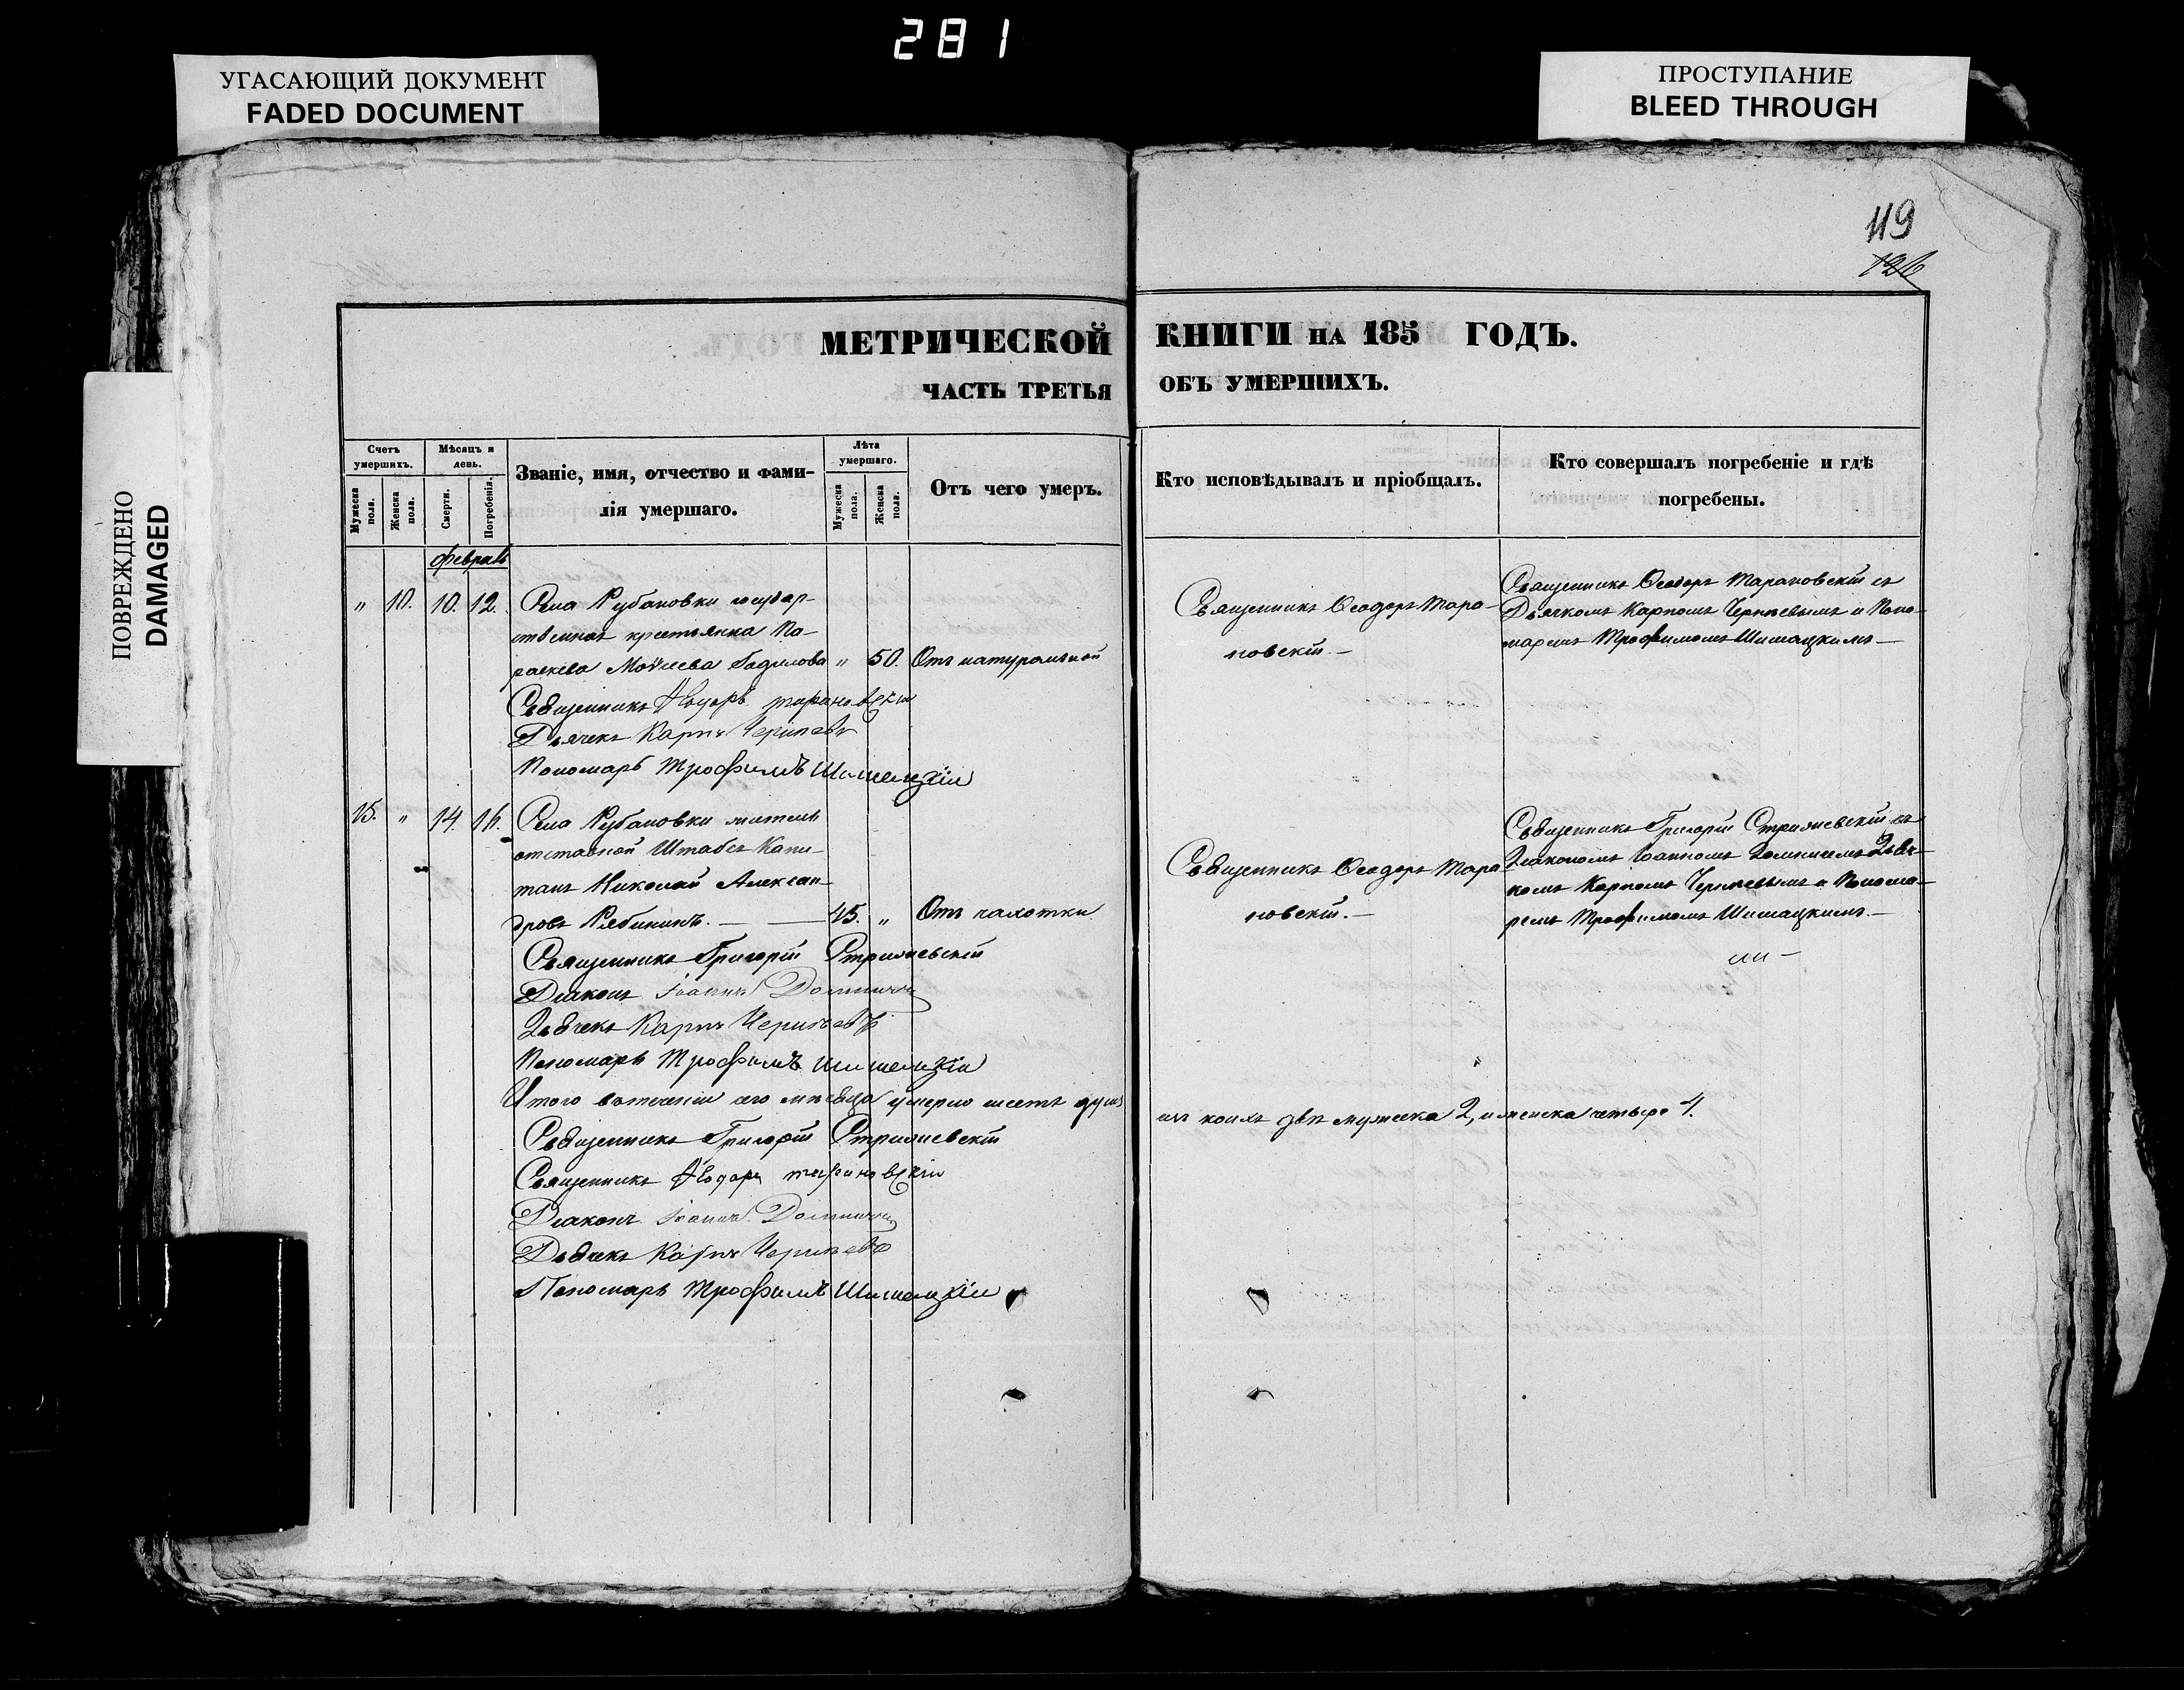 281
УГАСАЮЩИЙ ДОКУМЕНТ
FADED DOCUMENT
ПРОСТУПАНИЕ
BLEED THROUGH
ПОВРЕЖДЕНО
DAMAGED
119
126
МЕТРИЧЕСКОЙ КНИГИ НА 185 ГОДЪ.
ЧАСТЬ ТРЕТЬЯ ОБЪ УМЕРШИХЪ.
Счетъ умершихъ.
Мужеска пола.
Женска пола.
Мѣсяцъ и день.
Смерти.
Погребенія.
Званіе, имя, отчество и фами-
лія умершаго.
Лѣта умершаго.
Мужеска пола.
Женска пола.
Отъ чего умеръ.
Кто исповѣдывалъ и пріобщалъ.
Кто совершалъ погребеніе и гдѣ
погребены.
Февраль
„ 10. 10. 12. Села Рубановки государ-
ственная крестьянка Па-
раскева Моѵсеева „ 50. Отъ натуральной
Священникъ Ѳеодоръ Тара-
новскій.—
Священникъ Ѳеодоръ Тарановскій съ
Дьячкомъ Карпомъ Черняевымъ и Поно-
маремъ Трофимомъ Шишацкимъ—
Священникъ Ѳеодоръ Тарановскій
Дьячекъ Карпъ Черняевъ
Пономарь Трофимъ Шишацкій
15. „ 14. 16. Села Рубановки житель
отставной Штабсъ Капи-
танъ Николай Алексан-
дровъ Рябининъ.— 45. „ Отъ чахотки
Священникъ Ѳеодоръ Тара-
новскій.—
Священникъ Григорій Стрижевскій съ
Діакономъ Іоанномъ Дьяч-
комъ Карпомъ Черняевымъ и Понома-
ремъ Трофимомъ Шишацкимъ.—
Священникъ Григорій Стрижевскій
Діаконъ Іоаннъ
Дьячекъ Карпъ Черняевъ
Пономарь Трофимъ Шишацкій
Итого втеченіи сего мѣсяца умерло шесть душъ изъ коихъ двѣ мужеска 2, и женска четыре 4.
Священникъ Григорій Стрижевскій
Священникъ Ѳеодоръ Тарановскій
Діаконъ Іоаннъ
Дьячекъ Карпъ Черняевъ
Пономарь Трофимъ Шишацкій